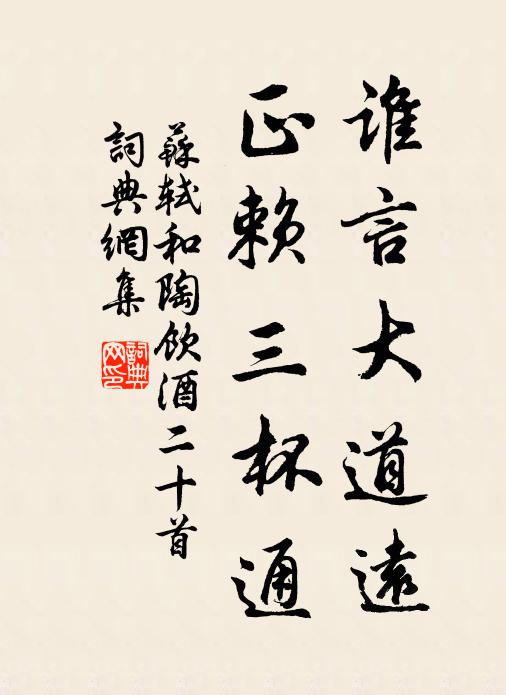 誰言大道遠
正賴三杯通
蘇軾和陶飲酒二十首
詞典網集
詞典网印